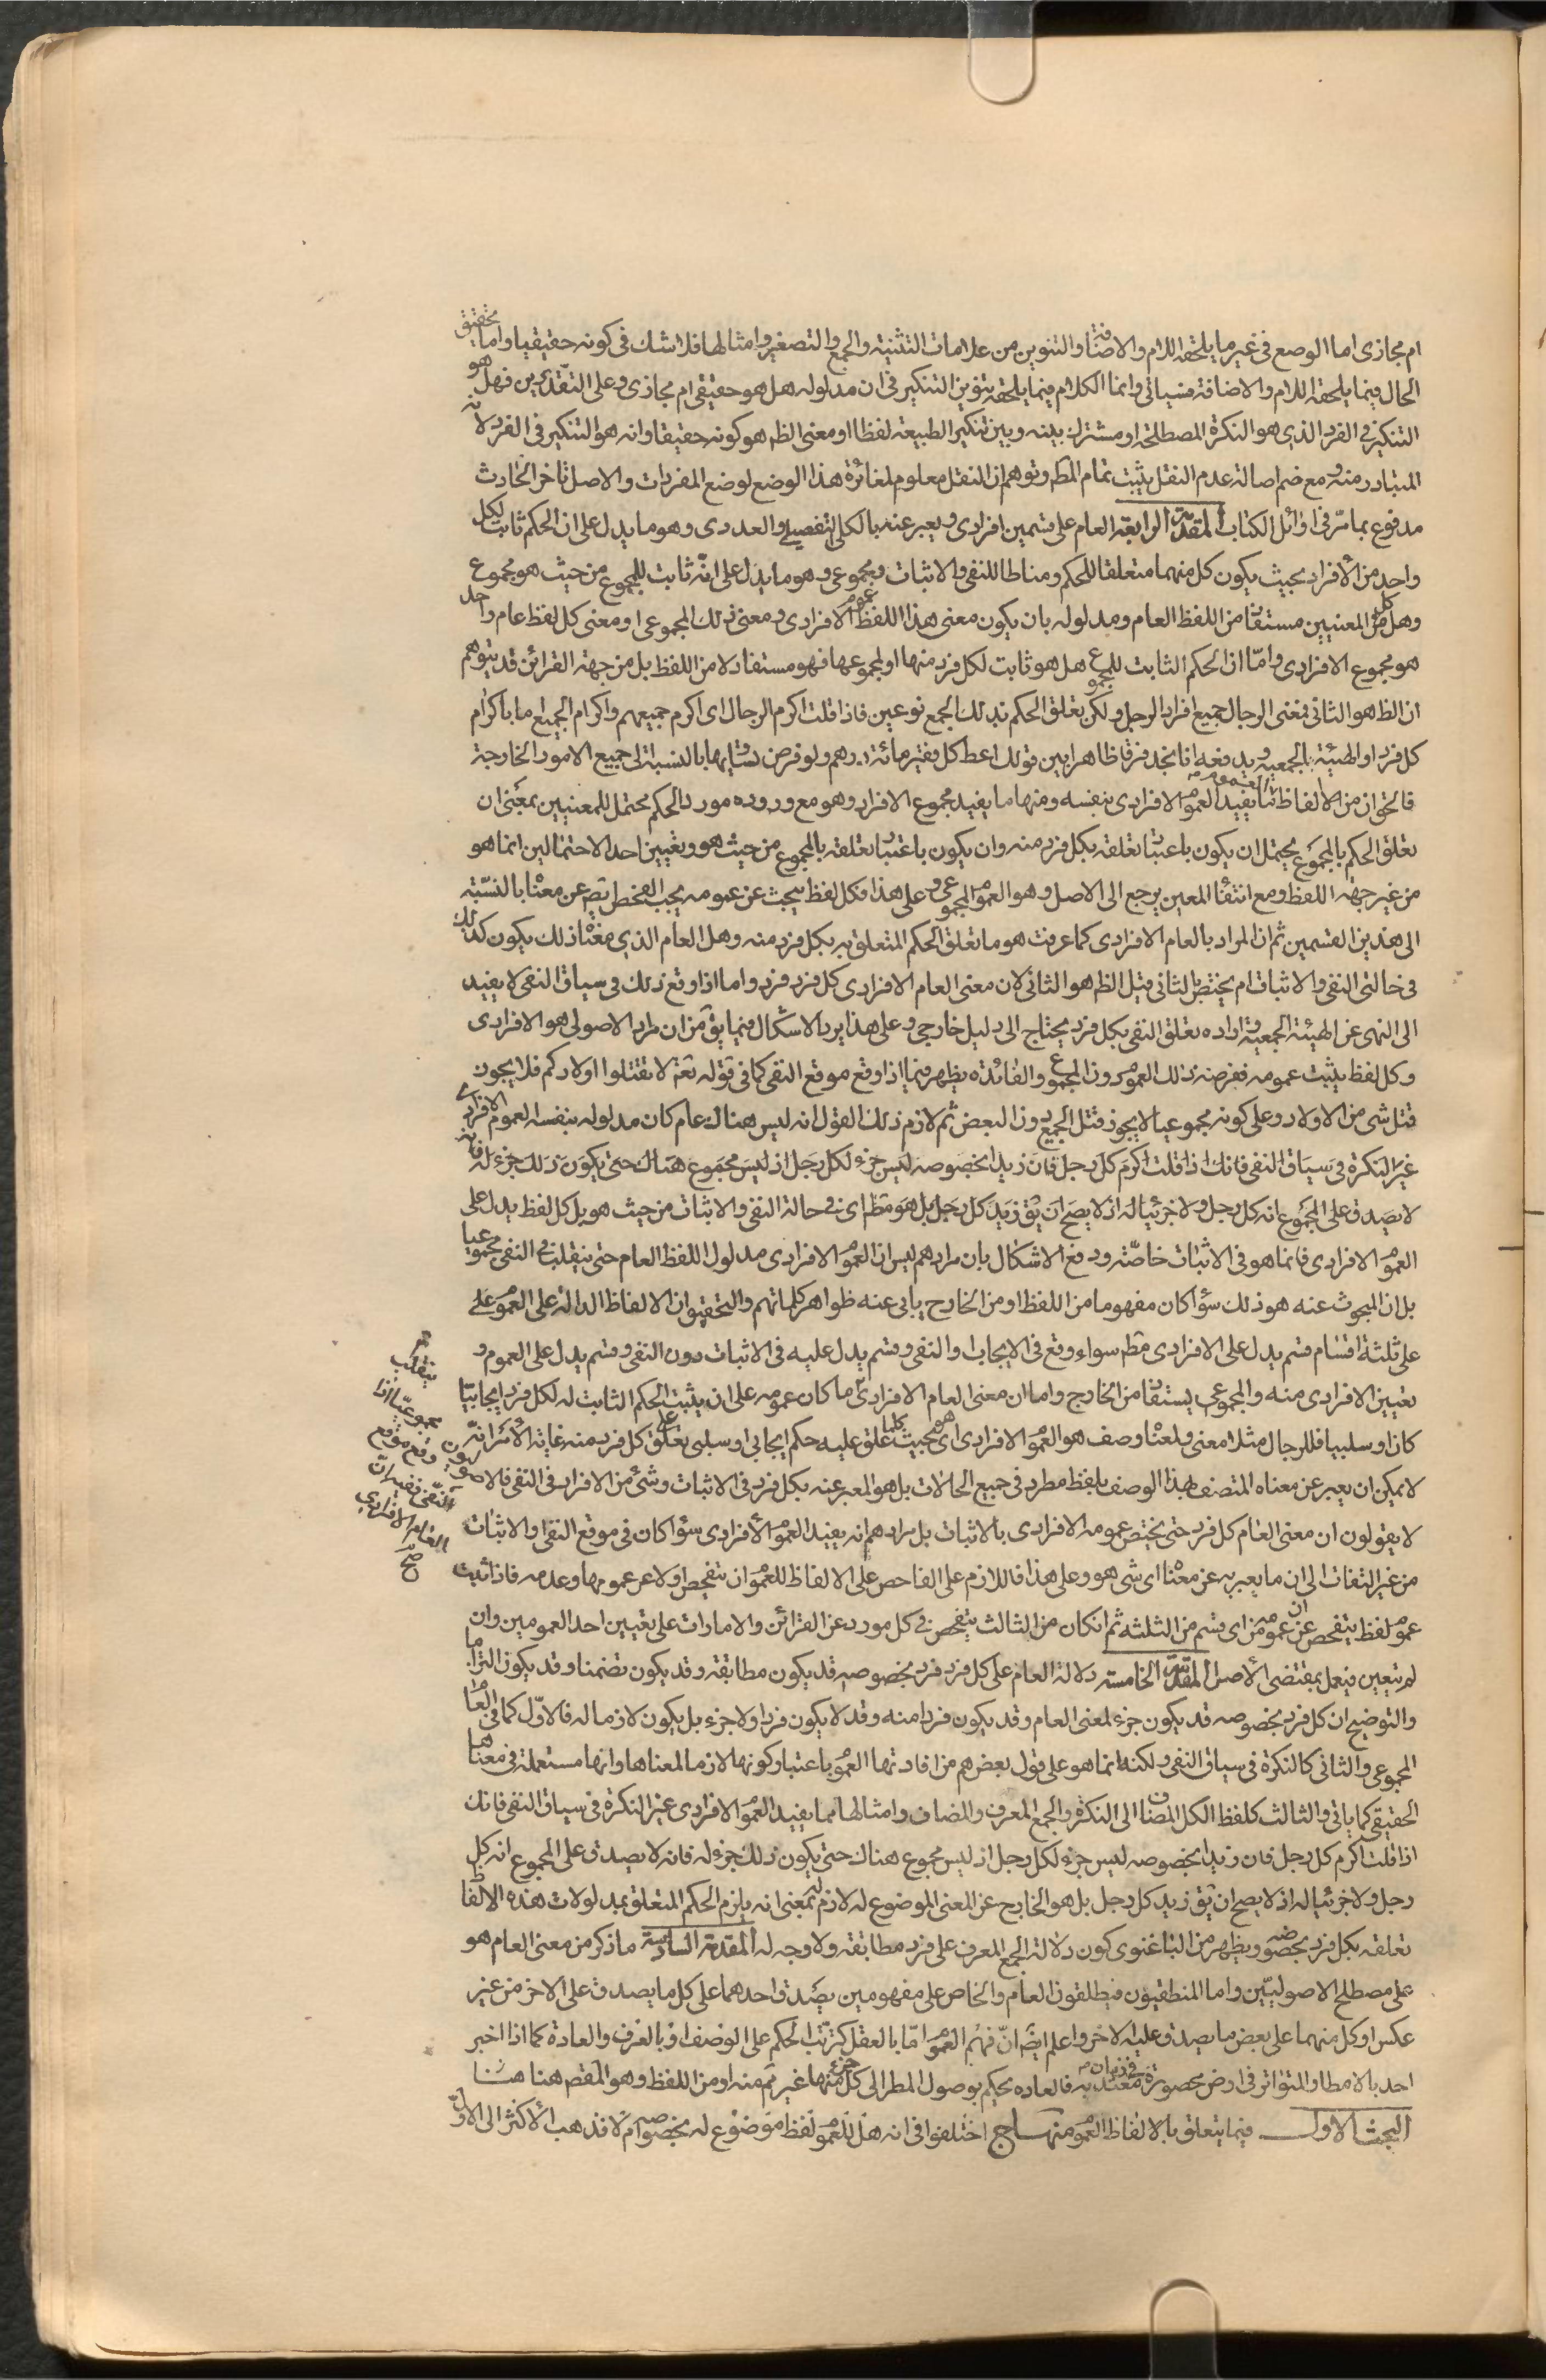 ام مجازى اما الوضع فى غير ما يلحقه اللام والاضافة والتنوين من علامات التثنية والجمع والتصغير وامثالها فلا شك فى كونه حقيقيا واما تحقيق
الحال فيما يلحقه اللام والاضافة فسياتى وانما الكلام فيما يلحقه تنوين التنكير فى ان مدلوله هل هو حقيقى ام مجازى وعلى التقديرين فهل هو
التنكير فى الفرد الذى هو النكرة المصطلحة او مشترك بينه وبين تنكير الطبيعة لفظا او معنى الظم هو كونه حقيقا وانه هو التنكير فى الفرد لانه
المتبادر منه ومع ضم اصالة عدم النقل يثبت تمام المط وتوهم ان النقل معلوم لمغائرة هذا الوضع لوضع المفردات والاصل تاخر الحادث
مدفوع بما مرّ فى اوائل الكتاب المقدمة الرابعة العام على قسمين افرادى ويعبر عنه بالكلى التفصيلى والعددى وهو ما يدل على ان الحكم ثابت لكل
واحد من الأفراد بحيث يكون كل منهما متعلقا للحكم ومناطا للنفى والاثبات ومجموعى وهو ما يدل على انّه ثابت للمجموع من حيث هو مجموع
وهل كل من المعنيين مستفاد من اللفظ العام ومدلوله بان يكون معنى هذا اللفظ عموم الافرادى ومعنى ذلك المجموعى او معنى كل لفظ عام واحد
هو مجموع الافرادى وامّا ان الحكم الثابت للمجموع هل هو ثابت لكل فرد منها او لمجموعها فهو مستفاد لا من اللفظ بل من جهة القرائن قد يتوهم
ان الظ هو الثانى فمعنى الرجال جميع افراد الرجل ولكن تعلق الحكم بذلك الجمع نوعين فاذا قلت اكرم الرجال اى اكرم جميعهم واكرام الجميع اما باكرام
كل فرد او الهيئة الجمعية ويدفعه انا نجد فرقا ظاهرا بين قولك اعط كل فقير مائة درهم ولو فرض تساويها بالنسبة الى جميع الامور الخارجة
فالحق ان من الالفاظ ما يفيد العموم الافرادى بنفسه ومنها ما يفيد مجموع الافراد وهو مع وروده مورد الحكم محتمل للمعنيين بمعنى ان
تعلق الحكم بالمجموع يحتمل ان يكون باعتبار تعلقه بكل فرد منه وان يكون باعتبار تعلقه بالمجموع من حيث هو وتعيين احد الاحتمالين انما هو
من غير جهة اللفظ ومع انتفاء المعين يرجع الى الاصل وهو العموم المجموعى وعلى هذا فكل لفظ يبحث عن عمومه يجب الفحص ايض عن معناه بالنسبة
الى هذين القسمين ثم ان المراد بالعام الافرادى كما عرفت هو ما تعلق الحكم المتعلق به بكل فرد منه وهل العام الذى معناه ذلك يكون كذلك
فى حالتى النفى والاثبات ام يختص بالثانى قيل الظم هو الثانى لان معنى العام الافرادى كل فرد فرد واما اذا وقع ذلك فى سياق النفى لا يفيد
الى النهى عن الهيئة الجمعية وارادة تعلق النفى بكل فرد يحتاج الى دليل خارجى وعلى هذا يرد الاشكال فيما يق من ان مراد الاصولى هو الافرادى
وكل لفظ يثبت عمومه فغرضه ذلك العموم دون المجموع والفائدة يظهر فيما اذا وقع موقع النفى كما فى قوله تعم لا تقتلوا اولادكم فلا يجوز
قتل شى من الاولاد وعلى كونه مجموعيا لا يجوز قتل الجميع دون البعض ثم لازم ذلك القول انه ليس هناك عام كان مدلوله بنفسه العموم الافرادى
غير النكرة فى سياق النفى فانك اذا قلت اكرم كل رجل فان زيدا بخصوصه ليس جزء لكل رجل اذ ليس مجموع هناك حتى يكون ذلك جزء له فانه
لا يصدق على المجموع انه كل رجل ولا جزئيا له اذ لا يصح ان يق زيد كل رجل بل هو مط اى فى حالة النفى والاثبات من حيث هو بل كل لفظ يدل على
العموم الافرادى فانما هو فى الاثبات خاصّة ودفع الاشكال بان مرادهم ليس ان العموم الافرادى مدلول اللفظ العام حتى ينقلب فى النفى مجموعيا
بل ان المبحوث عنه هو ذلك سواء كان مفهوما من اللفظ او من الخارج يابى عنه ظواهر كلماتهم والتحقيق ان الالفاظ الدالة على العموم على
على ثلثة اقسام قسم يدل على الافرادى مط سواء وقع فى الايجاب او النفى وقسم يدل عليه فى الاثبات دون النفى وقسم يدل على العموم و
تعيين الافرادى منه والمجموعى يستفاد من الخارج واما ان معنى العام الافرادى ما كان عمومه على ان يثبت الحكم الثابت له لكل فرد ايجابيّا
كان او سلبيا فللرجال مثلا معنى ولمعناه وصف هو العموم الافرادى اى هو بحيث كلما علق عليه حكم ايجابى او سلبى تعلق على كل فرد منه غاية الأمر انّه
لا يمكن ان يعبر عن معناه المتصف بهذا الوصف بلفظ مطرد فى جميع الحالات بل هو المعبر عنه بكل فرد فى الاثبات وشئ من الافراد فى النفى فالاصوليون
لا يقولون ان معنى العام كل فرد حتى يختص عمومه الافرادى بالاثبات بل مرادهم انه يفيد العموم الأفرادى سواء كان فى موقع النفى او الاثبات
من غير التفات الى ان ما يعبر به عن معناه اى شى هو وعلى هذا فاللازم على الفاحص على الالفاظ للعموم ان يتفحص اولا عن عمومها وعدمه فاذا ثبت
عموم لفظ يتفحص عن ان عمومه من اى قسم من الثلثة ثم ان كان من الثالث يتفحص فى كل مورد عن القرائن والامارات على تعيين احد العمومين وان
لم يتعين فيعمل بمقتضى الأصل المقدمة الخامسة دلالة العام على كل فرد فرد بخصوصه قد يكون مطابقة وقد يكون تضمنا وقد يكون التزاما
والتوضيح ان كل فرد بخصوصه قد يكون جزء لمعنى العام وقد يكون فردا منه وقد لا يكون فردا ولا جزء بل يكون لازما له فالاوّل كما فى العام
المجموعى والثانى كالنكرة فى سياق النفى ولكنه انما هو على قول بعضهم من افادتها العموم باعتبار كونها لازما لمعناها وانها مستعملة فى معناها
الحقيقى كما ياتى والثالث كلفظ الكل المضاف الى النكرة والجمع المعرف والمضاف وامثالها مما يفيد العموم الافرادى غير النكرة فى سياق النفى فانك
اذا قلت اكرم كل رجل فان زيدا بخصوصه ليس جزء لكل رجل اذ ليس مجموع هناك حتى يكون ذلك جزء له فانه لا يصدق على المجموع انه كل
رجل ولا جزئيا له اذ لا يصح ان يق زيد كل رجل بل هو الخارج عن المعنى الموضوع له لازم له بمعنى انه يلزم الحكم المتعلق بمدلولات هذه الالفاظ
تعلقه بكل فرد بخصوصه ويظهر من الباغنوى كون دلالة الجمع المعرف على فرد مطابقة ولا وجه له المقدمة السادسة ما ذكر من معنى العام هو
على مصطلح الاصوليّين واما المنطقيون فيطلقون العام والخاص على مفهومين يصدق احدهما على كل ما يصدق على الاخر من غير
عكس او كل منهما على بعض ما يصدق عليه الاخر واعلم ايض انّ فهم العموم امّا بالعقل كترتب الحكم على الوصف او بالعرف والعادة كما اذا اخبر
احد بالامطار المتواتر فى ارض محصورة فى زمان معتد به فالعادة يحكم بوصول المطر الى كل جزء منها غير ثم منه او من اللفظ وهو المقصم هنا هنا
البحث الاول فيما يتعلق بالالفاظ العموم منهاج اختلفوا فى انه هل للعموم لفظ موضوع له بخصوصه ام لا فذهب الأكثر الى الاوّل
ينقلب
مجموعيّا اذا
وقع موقع
النفى
العام الافرادى
صح